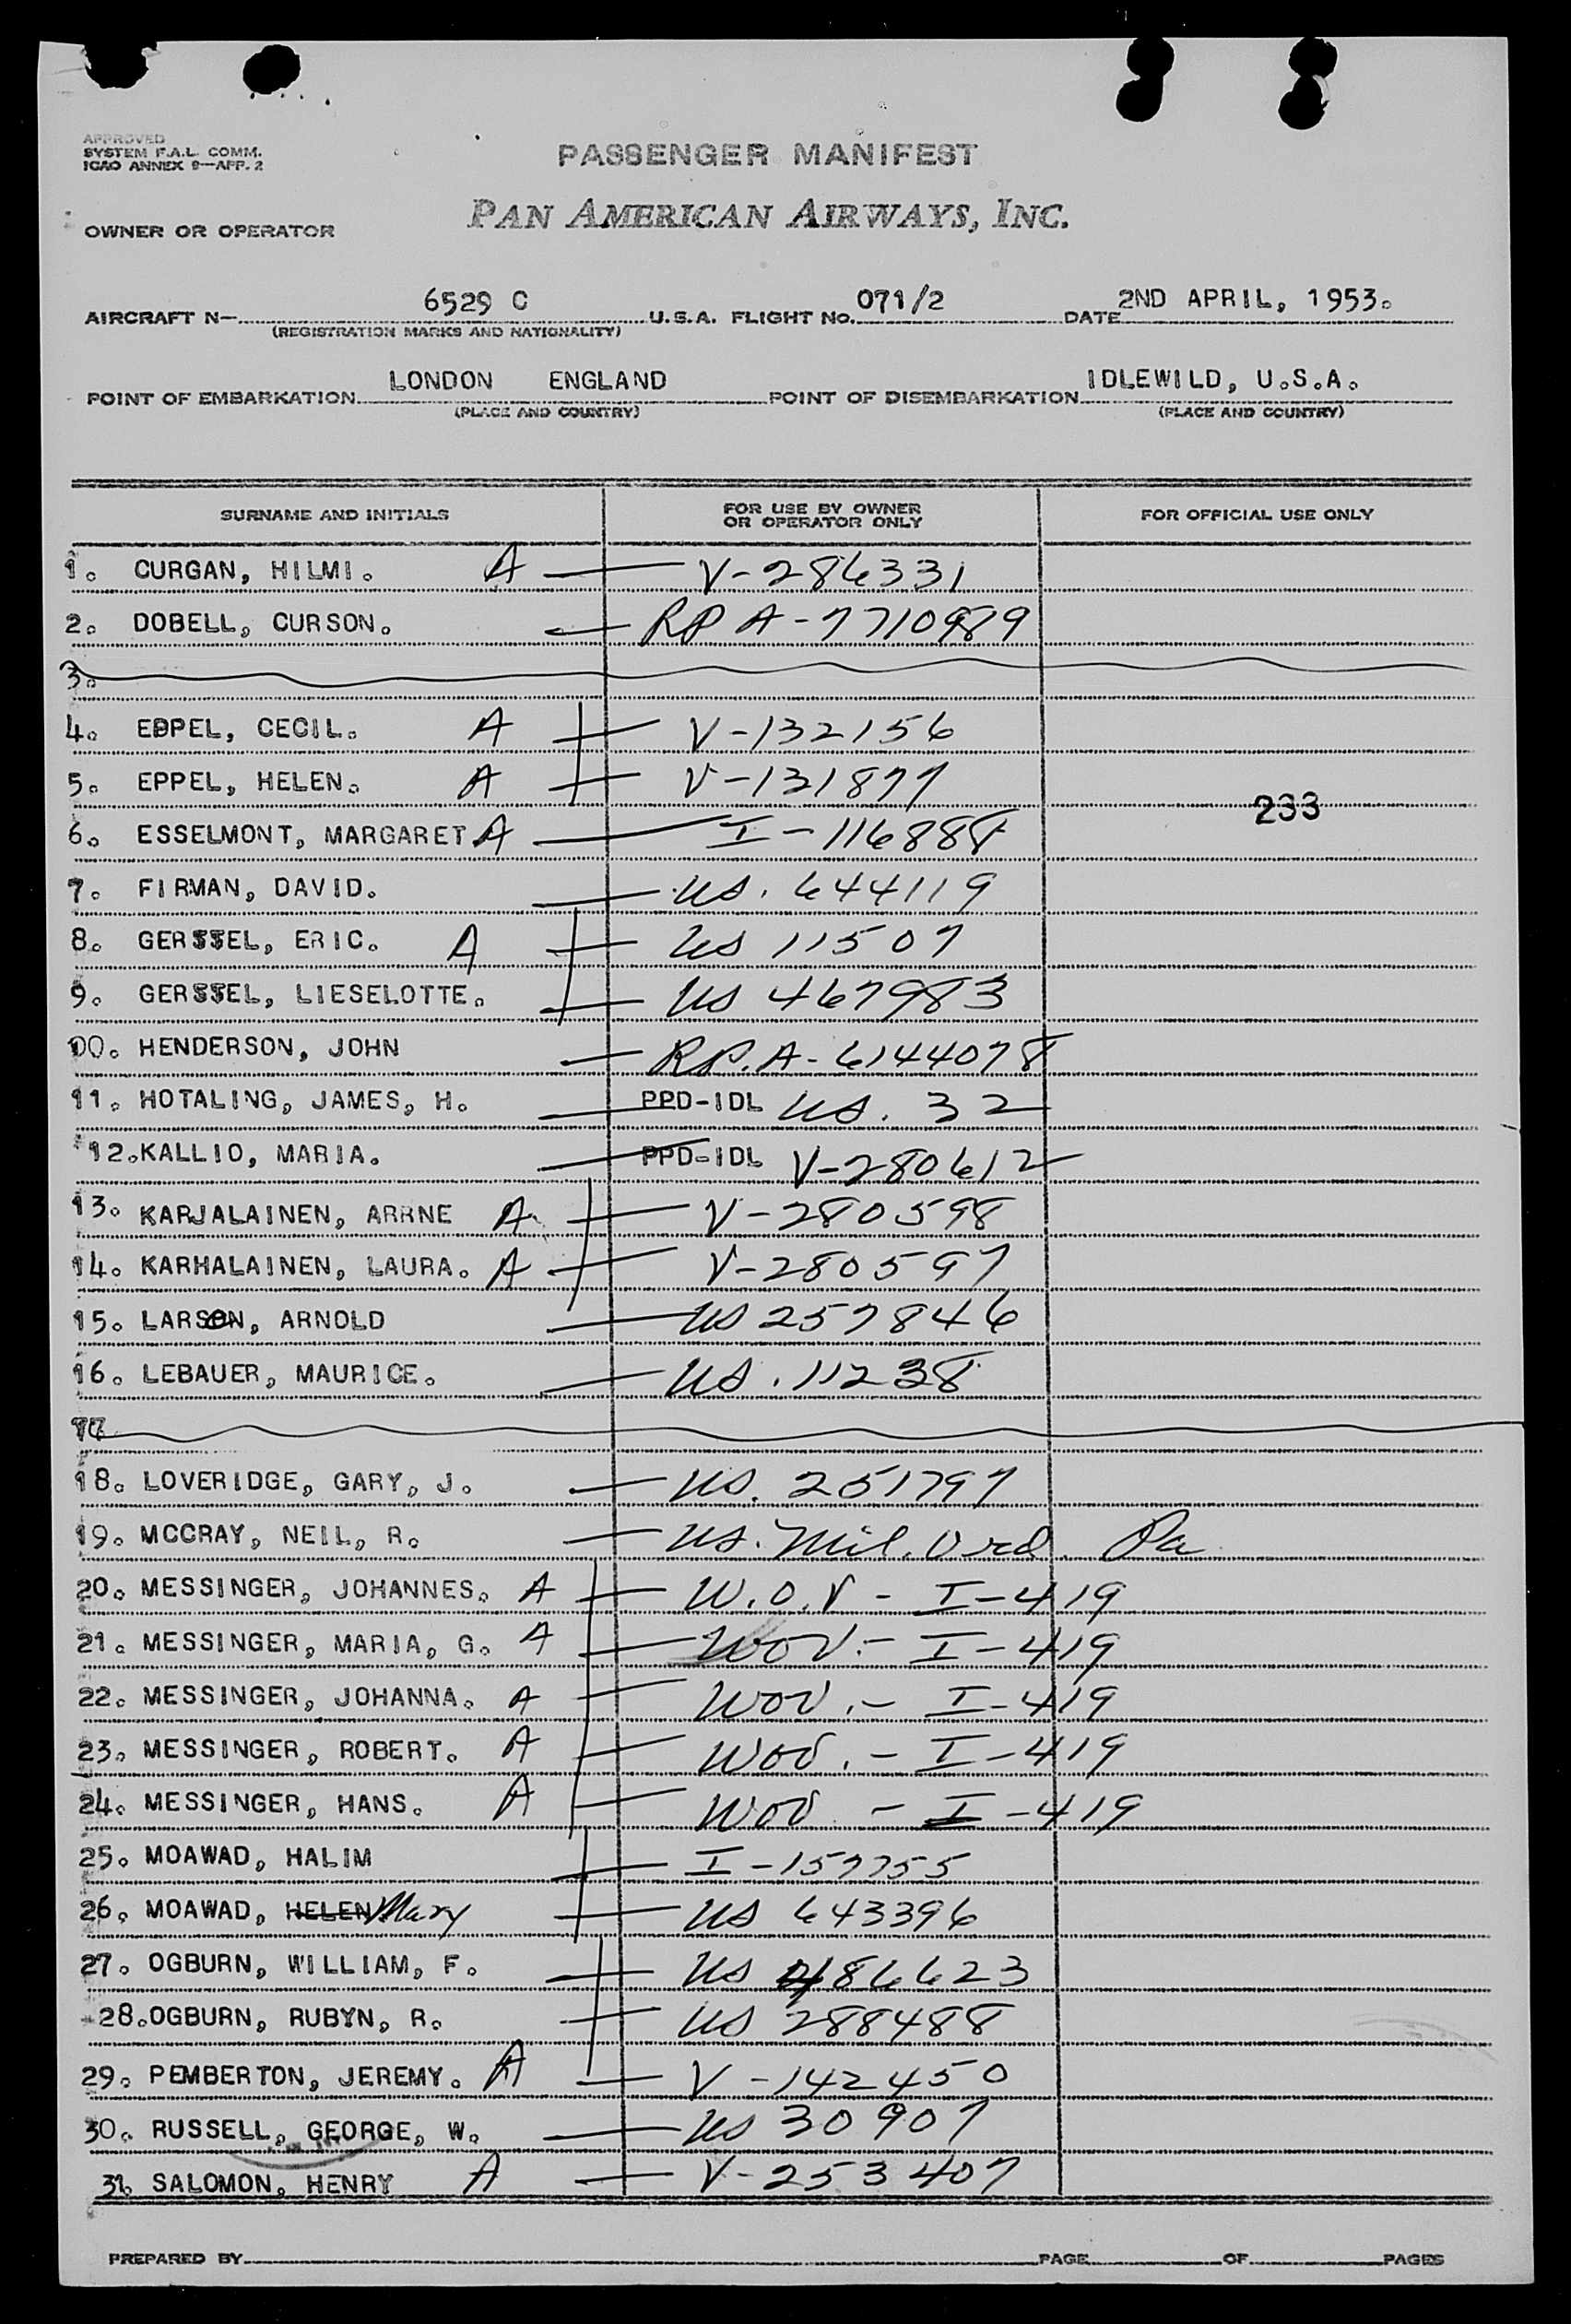 APPROVED
SYSTEM F.A.L. COMM.
ICAO ANNEX 9—APP. 2
PASSENGER MANIFEST
OWNER OR OPERATOR PAN AMERICAN AIRWAYS, INC.
AIRCRAFT N— 6529 C U.S.A. FLIGHT No. 071/2 DATE 2ND APRIL, 1953.
(REGISTRATION MARKS AND NATIONALITY)
POINT OF EMBARKATION LONDON ENGLAND POINT OF DISEMBARKATION IDLEWILD, U.S.A.
(PLACE AND COUNTRY) (PLACE AND COUNTRY)
SURNAME AND INITIALS FOR USE BY OWNER OR OPERATOR ONLY FOR OFFICIAL USE ONLY
1. CURGAN, HILMI. A — V-286331
2. DOBELL, CURSON. — RP A-7710989
3.
4. EPPEL, CECIL. A — V-132156
5. EPPEL, HELEN. A — V-131877
233
6. ESSELMONT, MARGARET A — I-116888
7. FIRMAN, DAVID. — US. 644119
8. GERSSEL, ERIC. A — US 11507
9. GERSSEL, LIESELOTTE. — US 467983
10. HENDERSON, JOHN — R.P. A-6144078
11. HOTALING, JAMES, H. — PPD-IDL US. 32
12. KALLIO, MARIA. — PPD-IDL V-280612
13. KARJALAINEN, ARRNE A — V-280598
14. KARHALAINEN, LAURA. A — V-280597
15. LARSEN, ARNOLD — US 257846
16. LEBAUER, MAURICE. — US. 11238
17
18. LOVERIDGE, GARY, J. — US. 251797
19. MCCRAY, NEIL, R. — US. Mil. Ord. Pa
20. MESSINGER, JOHANNES. A — W.O.V - I-419
21. MESSINGER, MARIA, G. A — WOV. - I-419
22. MESSINGER, JOHANNA. A — WOV. - I-419
23. MESSINGER, ROBERT. A — WOV. - I-419
24. MESSINGER, HANS. A — WOV - I-419
25. MOAWAD, HALIM — I-157755
26. MOAWAD, HELEN Mary — US 643396
27. OGBURN, WILLIAM, F. — US 486623
28. OGBURN, RUBYN, R. — US 288488
29. PEMBERTON, JEREMY. A — V-142450
30. RUSSELL, GEORGE, W. — US 30907
31. SALOMON, HENRY A — V-253407
PREPARED BY PAGE OF PAGES